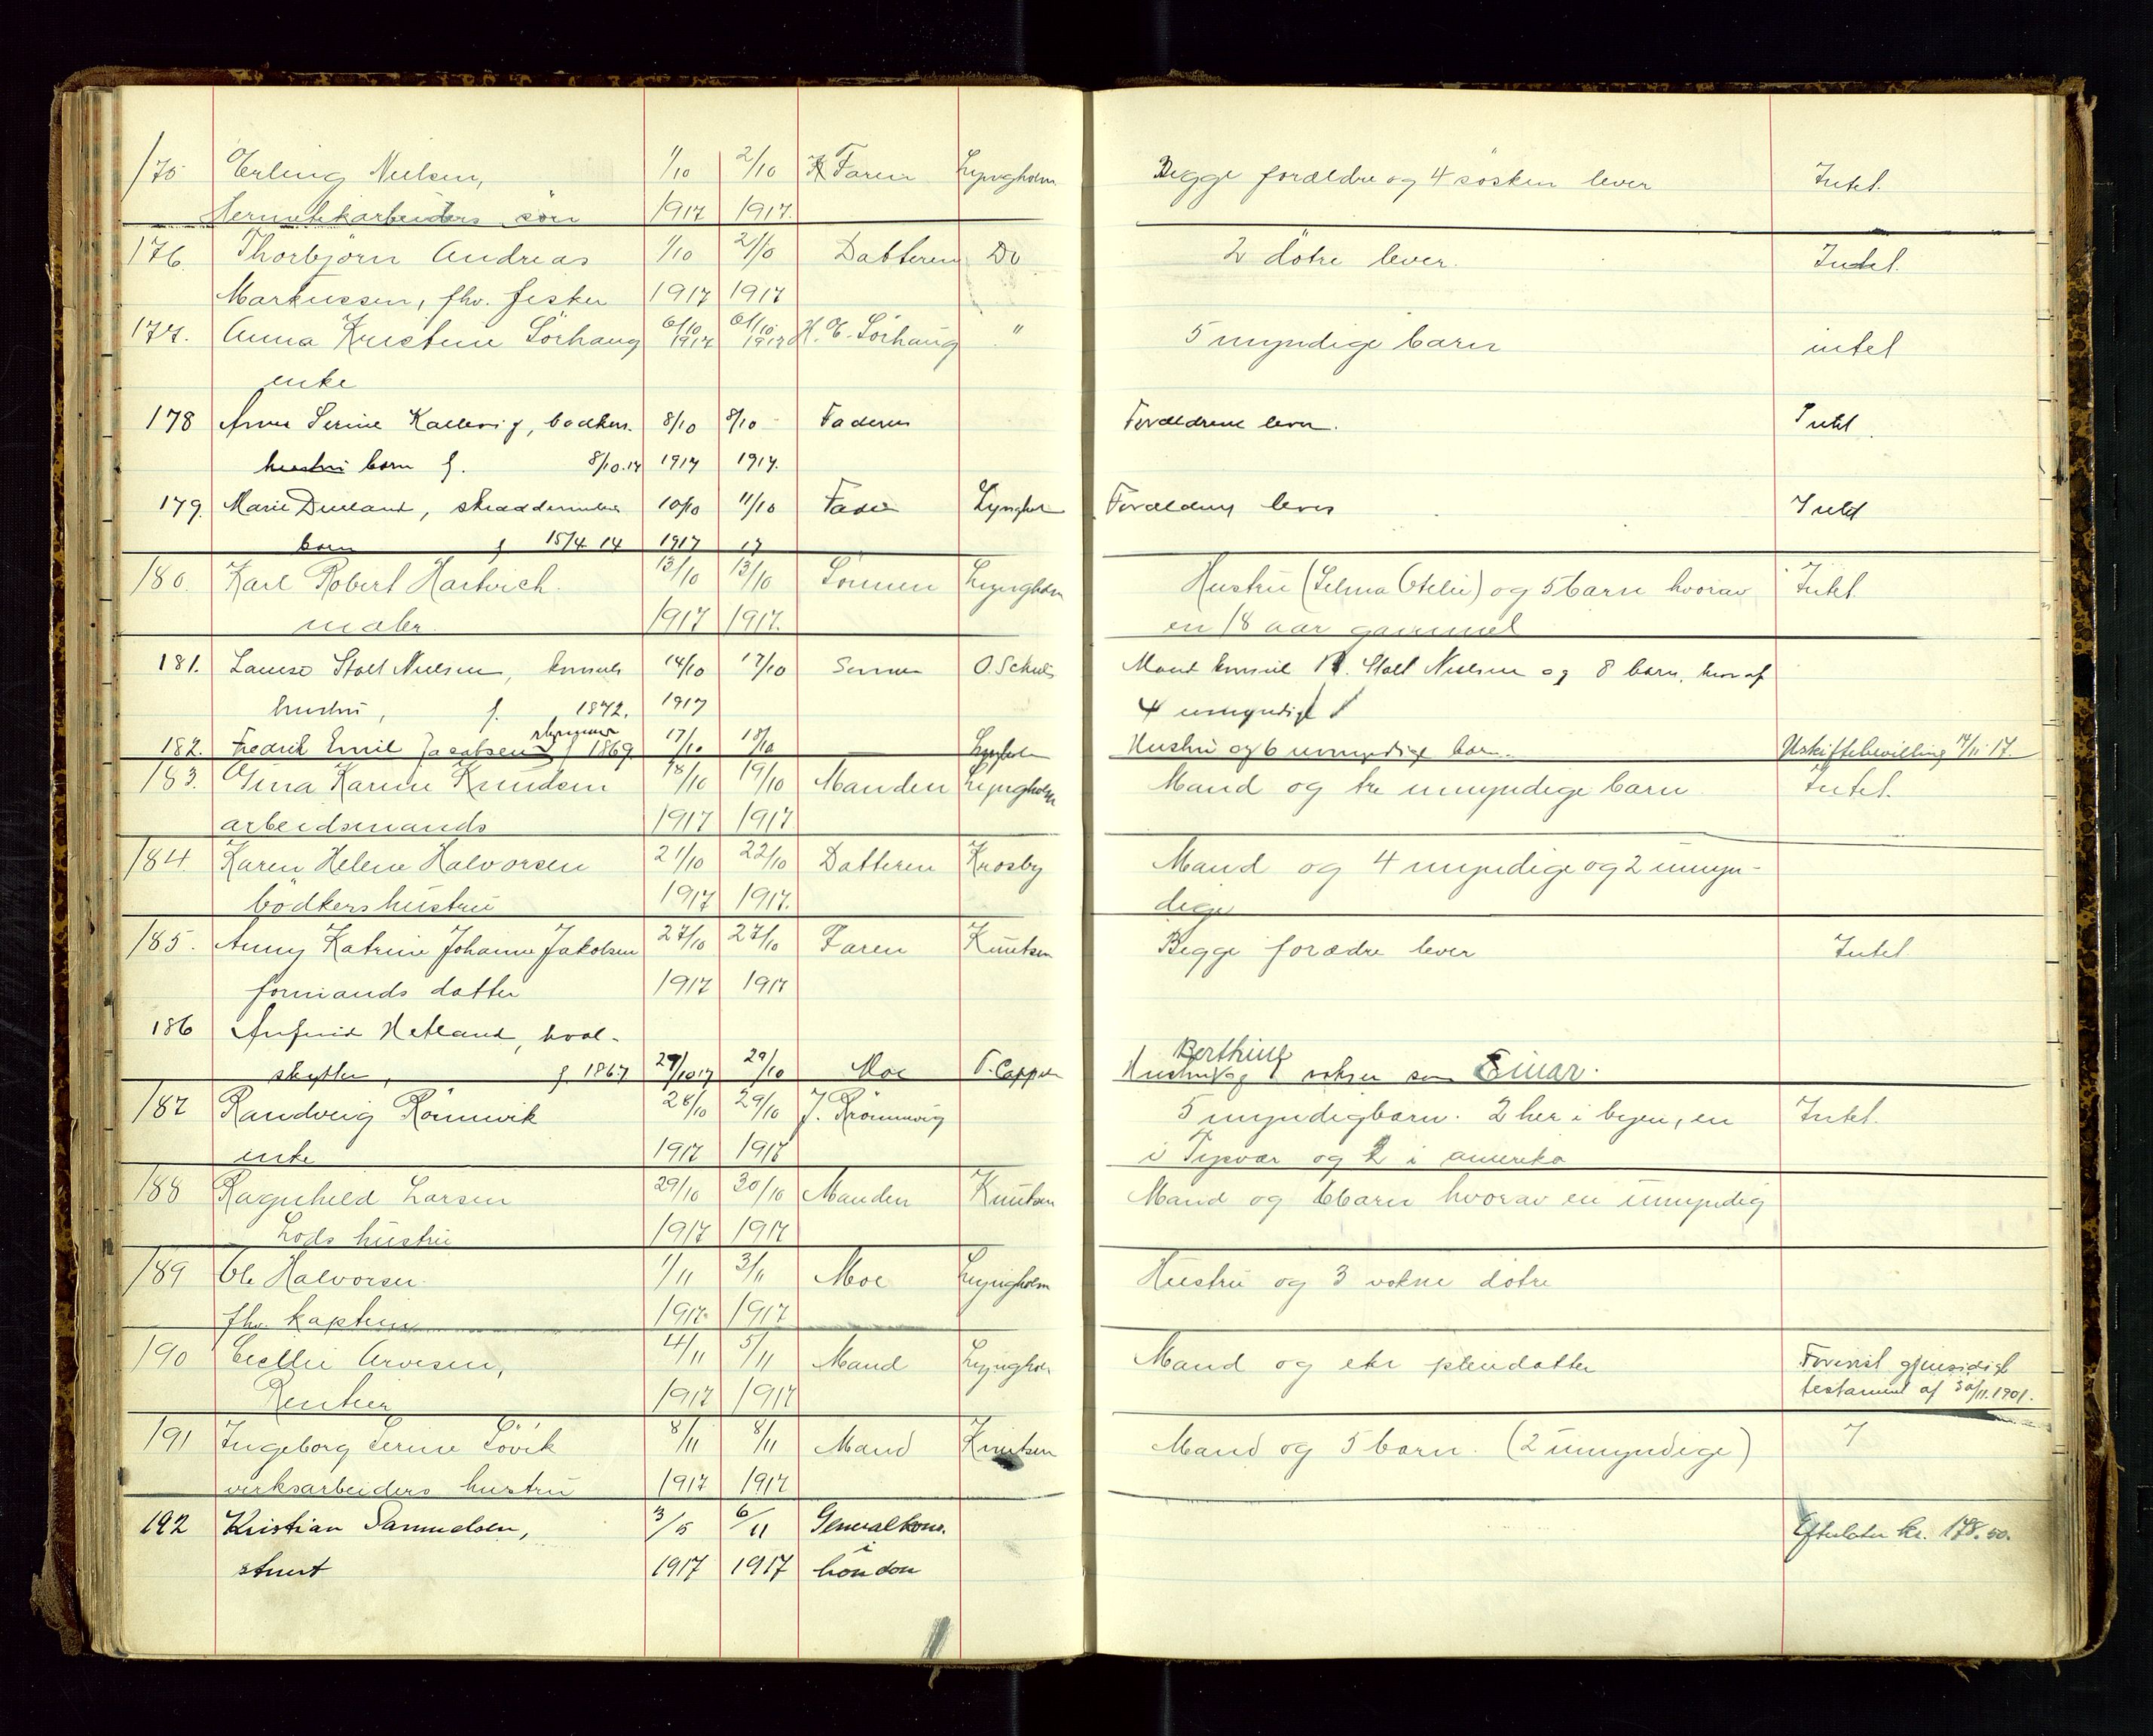 175 Erling Nielsen, 1/10 2/10 Faren Lyngholm Begge forældre og 4 søsken lever Intet.
Hermetikarbeiders søn 1917 1917.
176. Thorbjørn Andreas 1/10 2/10 Datteren Do 2 døtre lever. Intet.
Markussen, fhv. fisker 1917 1917
177. Anna Kristine Sørhaug 6/10 1917 6/10 1917 H. E. Sørhaug " 5 myndige barn intet
enke
178 Anna Serine Kallevig, bødkers. 8/10 8/10 Faderen Forældrene lever. Intet.
hustru barn f. 8/10.17 1917 1917.
179. Marie Dueland, 10/10 11/10 Fader Lyngholm Forældrene lever Intet
barn f 15/4 14 1917 17
180. Karl Robert Hartvich. 13/10 13/10 Sønnen Lyngholm Hustru (Selma Otelie) og 5 barn hvorav Intet.
maler. 1917 1917. en 18 aar gammel
181. Louise Stolt Nielsen, konsuls 14/10 17/10 Sønnen O. Mand konsul Stolt Nielsen og 8 barn, hvoraf
hustru, f. 1872. 1917 4 umyndige
182. Fredrik Emil Jacobsen f 1869 17/10 18/10 Lyngholm Hustru og 6 umyndige barn. Uskiftebevilling 14/11 17.
183. Gina Karine Knudsen 18/10 19/10 Manden Lyngholm Mand og tre umyndige barn Intet.
arbeidsmands 1917 1917
184. Karen Helene Halvorsen 21/10 22/10 Datteren Krosby Mand og 4 myndige og 2 umyn-
bødkers hustru 1917 1917. dige
185. Anny Katrine Johanne Jakobsen 27/10 27/10 Faren Knutsen Begge forædre lever Intet.
formands datter 1917 1917
186 Arnfind Hetland, hval-
Berthine
skytter, f. 1867 27/10 17 29/10 Moe Hustru og 1 voksen søn Einar.
187 Randveig Rønnevik 28/10 29/10 J. Rönnevig 5 myndigbarn. 2 her i byen, en Intet.
enke 1917 1917 i Tysvær og 2 i amerika
188 Ragnhild Larsen 29/10 30/10 Manden Knutsen Mand og 6 barn hvorav en umyndig
Lods hustru 1917 1917
189 Ole Halvorsen. 1/11 3/11 Moe Lyngholm Hustru og 3 voksne døtre
fhv. kaptein 1917. 1917
190 Cecilie Arvesen, 4/11 5/11 Mand Lyngholm Mand og en pleiedatter Forevist gjensidigt
Rentier 1917 1917 testament af 30/11. 1901.
191 Ingeborg Serine Løvik 8/11 8/11 Mand Knutsen Mand og 5 barn. (2 umyndige)
verksarbeiders hustru 1917 1917
192 Kristian Samuelsen, 3/5 6/11 Generalkons. Efterlater kr. 178.50.
stuert 1917 1917 i London